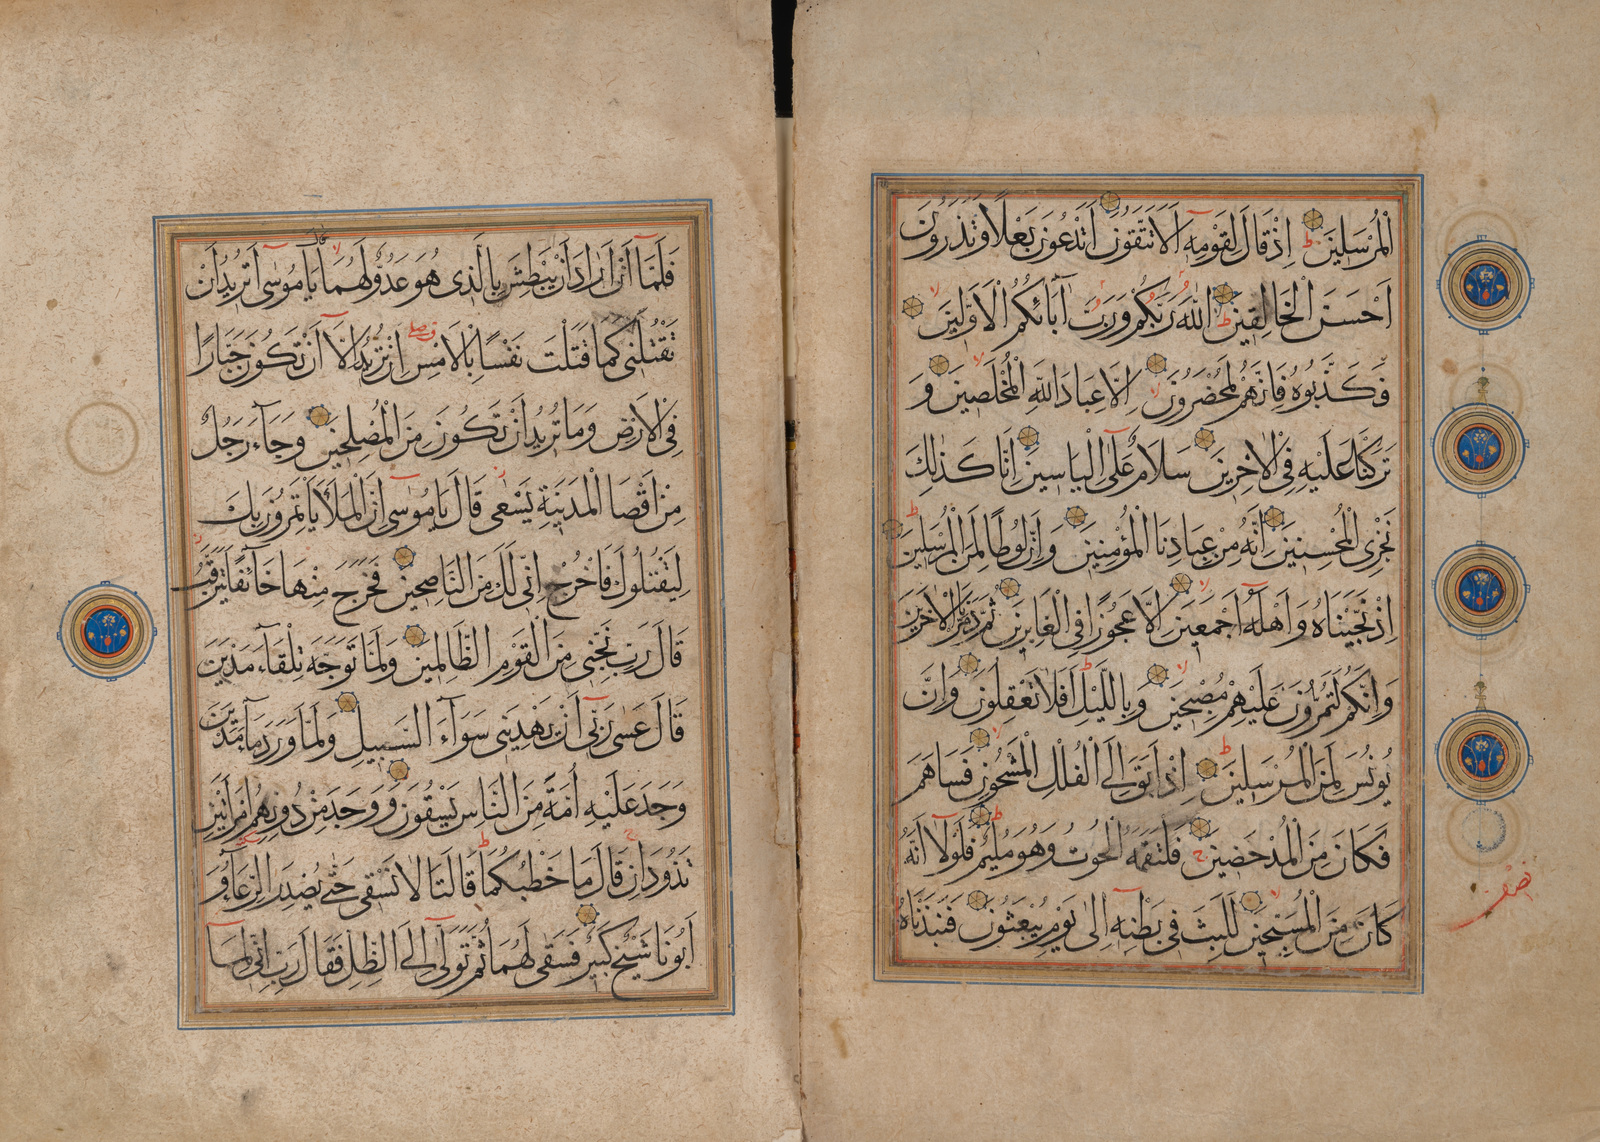 الْمُرْسَلِينَ اِذْ قَالَ لِقَوْمِهِ اَلَا تَتَّقُونَ اَتَدْعُونَ بَعْلًا وَتَذَرُونَ
اَحْسَنَ الْخَالِقِينَ اَللّٰهَ رَبَّكُمْ وَرَبَّ آبَائِكُمُ الْاَوَّلِينَ
فَكَذَّبُوهُ فَاِنَّهُمْ لَمُحْضَرُونَ اِلَّا عِبَادَ اللّٰهِ الْمُخْلَصِينَ وَ
تَرَكْنَا عَلَيْهِ فِي الْاٰخِرِينَ سَلَامٌ عَلٰى اِلْيَاسِينَ اِنَّا كَذٰلِكَ
نَجْزِي الْمُحْسِنِينَ اِنَّهُ مِنْ عِبَادِنَا الْمُؤْمِنِينَ وَاِنَّ لُوطًا لَمِنَ الْمُرْسَلِينَ
اِذْ نَجَّيْنَاهُ وَاَهْلَهُ اَجْمَعِينَ اِلَّا عَجُوزًا فِي الْغَابِرِينَ ثُمَّ دَمَّرْنَا الْاٰخَرِينَ
وَاِنَّكُمْ لَتَمُرُّونَ عَلَيْهِمْ مُصْبِحِينَ وَبِاللَّيْلِ اَفَلَا تَعْقِلُونَ وَاِنَّ
يُونُسَ لَمِنَ الْمُرْسَلِينَ اِذْ اَبَقَ اِلَى الْفُلْكِ الْمَشْحُونِ فَسَاهَمَ
فَكَانَ مِنَ الْمُدْحَضِينَ فَلْتَقَمَهُ الْحُوتُ وَهُوَ مُلِيمٌ فَلَوْلَا اَنَّهُ
كَانَ مِنَ الْمُسَبِّحِينَ لَلَبِثَ فِي بَطْنِهِ اِلٰى يَوْمِ يُبْعَثُونَ فَنَبَذْنَاهُ
نصف
فَلَمَّا اَنْ اَرَادَ اَنْ يَبْطِشَ بِالَّذِي هُوَ عَدُوٌّ لَهُمَا قَالَ يَا مُوسٰى اَتُرِيدُ اَنْ
تَقْتُلَنِي كَمَا قَتَلْتَ نَفْسًا بِالْاَمْسِ اِنْ تُرِيدُ اِلَّا اَنْ تَكُونَ جَبَّارًا
فِي الْاَرْضِ وَمَا تُرِيدُ اَنْ تَكُونَ مِنَ الْمُصْلِحِينَ وَجَآءَ رَجُلٌ
مِنْ اَقْصَا الْمَدِينَةِ يَسْعٰى قَالَ يَا مُوسٰى اِنَّ الْمَلَاَ يَاْتَمِرُونَ بِكَ
لِيَقْتُلُوكَ فَاخْرُجْ اِنِّي لَكَ مِنَ النَّاصِحِينَ فَخَرَجَ مِنْهَا خَآئِفًا يَتَرَقَّبُ
قَالَ رَبِّ نَجِّنِي مِنَ الْقَوْمِ الظَّالِمِينَ وَلَمَّا تَوَجَّهَ تِلْقَآءَ مَدْيَنَ
قَالَ عَسٰى رَبِّي اَنْ يَهْدِيَنِي سَوَآءَ السَّبِيلِ وَلَمَّا وَرَدَ مَآءَ مَدْيَنَ
وَجَدَ عَلَيْهِ اُمَّةً مِنَ النَّاسِ يَسْقُونَ وَوَجَدَ مِنْ دُونِهِمُ امْرَاَتَيْنِ
تَذُودَانِ قَالَ مَا خَطْبُكُمَا قَالَتَا لَا نَسْقِي حَتّٰى يُصْدِرَ الرِّعَآءُ وَ
اَبُونَا شَيْخٌ كَبِيرٌ فَسَقٰى لَهُمَا ثُمَّ تَوَلّٰى اِلَى الظِّلِّ فَقَالَ رَبِّ اِنِّي لِمَا